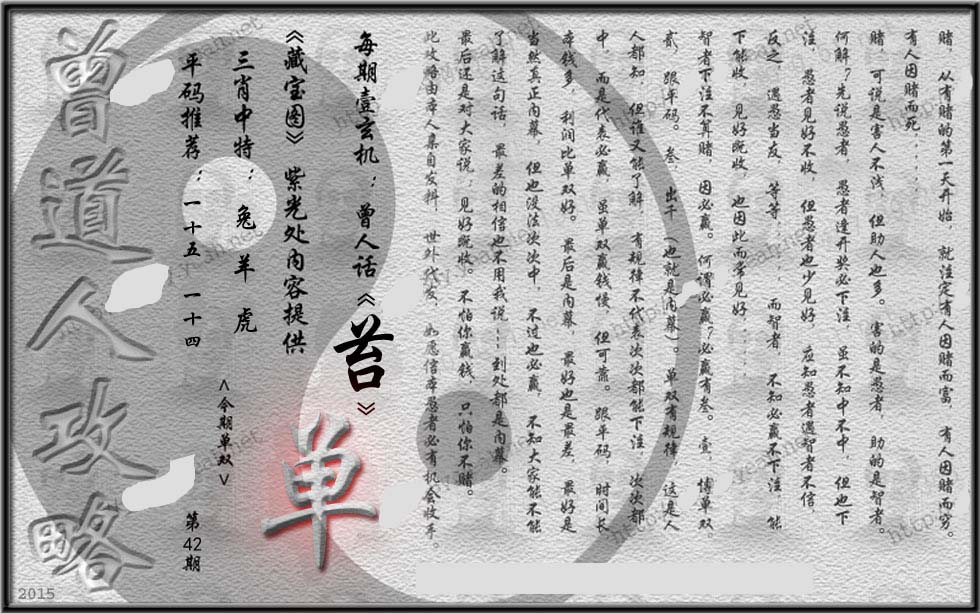 赌，从有赌的第一天开始，就注定有人因赌而富，有人因赌而穷。
有人因赌而死．．．．．
赌，可说是害人不浅，但助人也多。害的是愚者，助的是智者。
何解？先说愚者，愚者逢开奖必下注，虽不知中不中，但也下
注，愚者见好不收，但愚者也少见好，应知愚者遇智者不信，
反之，遇愚当友，等等．．．．．而智者，不知必赢不下注，能
下能收，见好既收，也因此而常见好．．．．．
智者下注不算赌，因必赢。何谓必赢？必赢有叁。壹，博单双，
贰，跟平码。叁，出千（也就是内幕）。单双有规律，这是人
人都知，但谁又能了解，有规律不代表次次都能下注，次次都
中，而是代表必赢，虽单双赢钱慢，但可靠。跟平码，时间长
本钱多，利润比单双好。最后是内幕，最好也是最差，最好是
当然真正内幕，但也没法次次中，不过也必赢，不知大家能不能
了解这句话，最差的相信也不用我说．．．到处都是内幕。
最后还是对大家说：见好既收。不怕你赢钱，只怕你不赌。
此攻略由本人亲自发料，世外代友，如愿信本愚者必有机会收手。
每期壹玄机：曾人话《苔》
《藏宝图》紫光处内容提供
三肖中特：兔 羊 虎
平码推荐：一十五 一十四
单
<今期单双>
第42期
曾道人攻略
2015